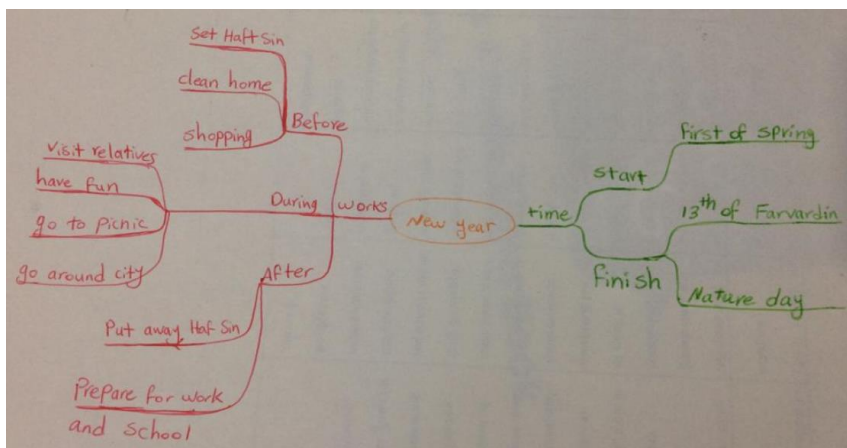 Set Haft Sin
clean home
shopping
Before
Visit relatives
have fun
go to picnic
go around city
During
works
After
Put away Haf Sin
Prepare for work
and school
New year
time
start
first of spring
finish
13th of Farvardin
Nature day